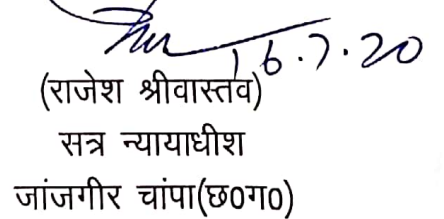 16.7.20
(राजेश श्रीवास्तव)
सत्र न्यायाधीश
जांजगीर चांपा(छ0ग0)